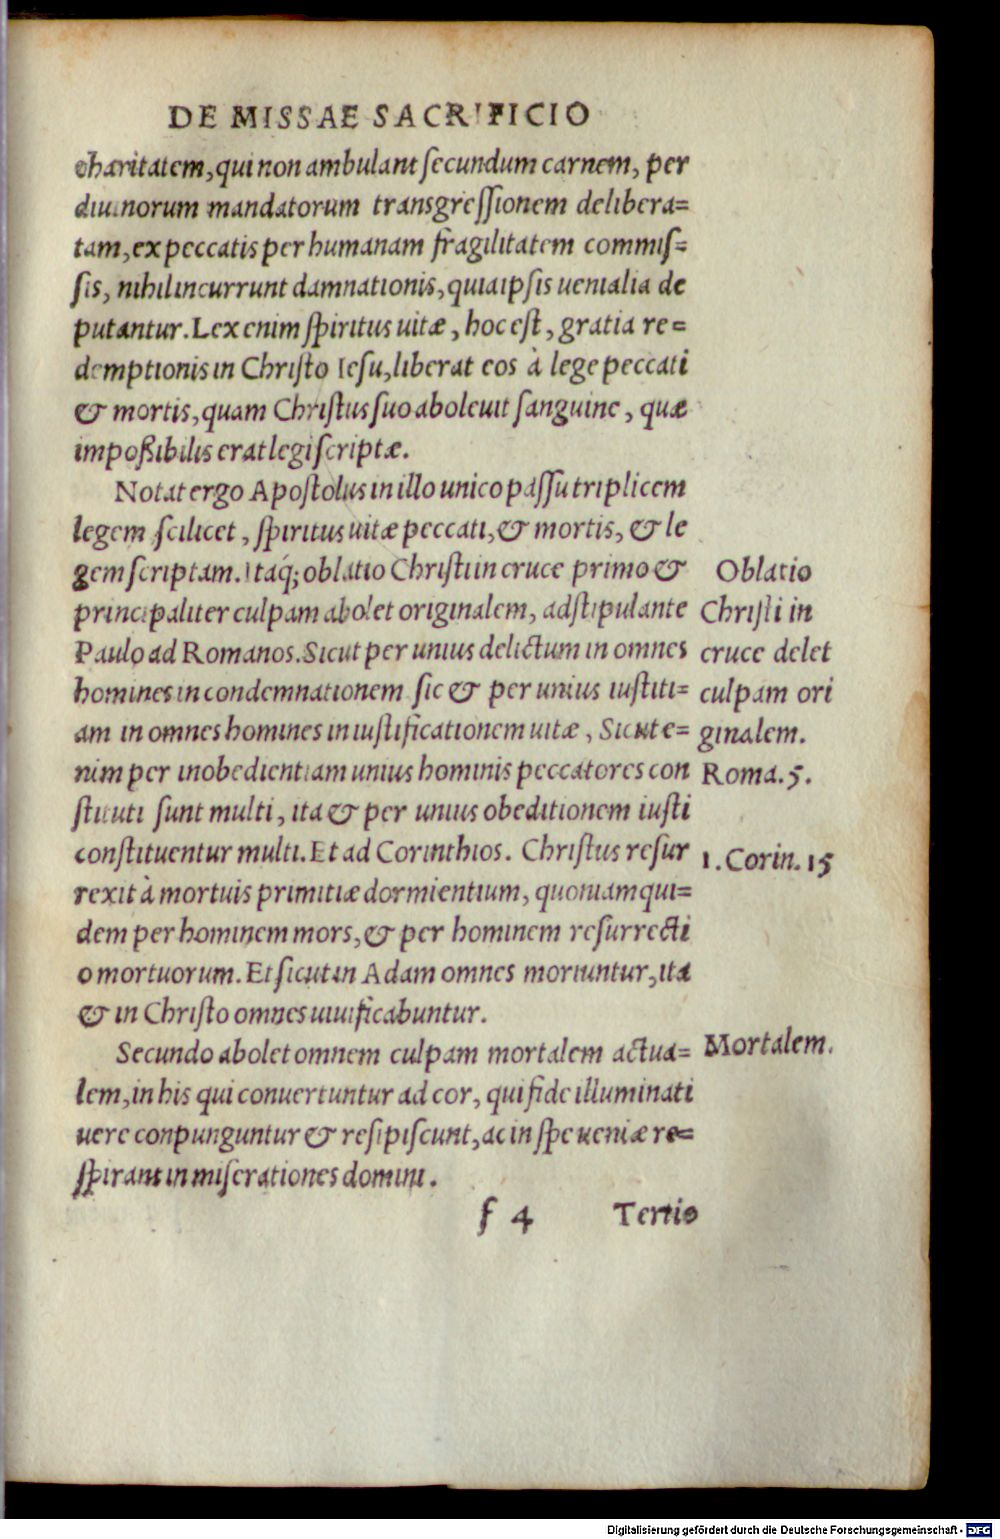 DE MISSAE SACRIFICIO
charitatem, qui non ambulant ſecundum carnem, per
diuinorum mandatorum transgreſſionem delibera=
tam, ex peccatis per humanam fragilitatem commiſ=
ſis, nihil incurrunt damnationis, quia ipſis uenialia de
putantur. Lex enim ſpiritus uitæ, hoc eſt, gratia re=
demptionis in Chriſto Ieſu, liberat eos à lege peccati
& mortis, quam Chriſtus ſuo aboleuit ſanguine, quæ
impoßibilis erat legi ſcriptæ.
Notat ergo Apoſtolus in illo unico paſſu triplicem
legem ſcilicet, ſpiritus uitæ peccati, & mortis, & le
gem ſcriptam. Itaq́; oblatio Chriſti in cruce primo &
principaliter culpam abolet originalem, adſtipulante
Paulo ad Romanos. Sicut per unius delictum in omnes
homines in condemnationem ſic & per unius iuſtiti=
am in omnes homines in iuſtificationem uitæ, Sicut e=
nim per inobedientiam unius hominis peccatores con
ſtituti ſunt multi, ita & per unius obeditionem iuſti
conſtituentur multi. Et ad Corinthios. Chriſtus reſur
rexit à mortuis primitiæ dormientium, quoniam qui=
dem per hominem mors, & per hominem reſurrecti
o mortuorum. Et ſicut in Adam omnes moriuntur, ita
& in Chriſto omnes uiuificabuntur.
Secundo abolet omnem culpam mortalem actua=
lem, in his qui conuertuntur ad cor, qui fide illuminati
uere conpunguntur & reſipiſcunt, ac in ſpe ueniæ re=
ſpirant in miſerationes domini.
f 4 Tertio
Oblatio
Chriſti in
cruce delet
culpam ori
ginalem.
Roma. 5.
1. Corin. 15
Mortalem.
Digitalisierung gefördert durch die Deutsche Forschungsgemeinschaft - DFG